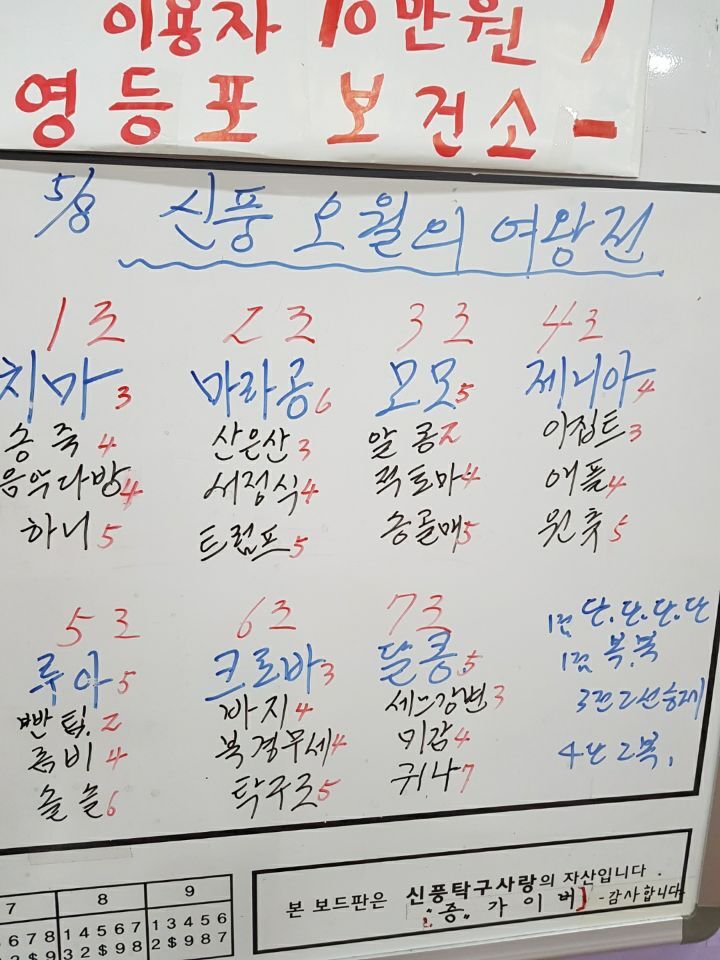 이용자 10만원
영등포 보건소 -
5/8 신풍 오월의 여왕전
1조 2조 3조 4조
치마3 마라콩6 모모5 제니아4
송죽4 산은산3 알콩2 이집트3
음악다방4 서정식4 적토마4 애플4
하니5 트럼프5 송골매5 원츄5
5조 6조 7조
루아5 크로바3 달콩5
빤팀.2 바지4 세느강변3
좀비4 북경무세4 미감4
솔솔6 탁구로5 귀나7
1번 단.단.단.단
1번 복.복
3전2선승제
4단2복.
7 8 9
6 7 8 1 4 5 6 7 1 3 4 5 6
3 2 $ 9 8 2 $ 9 8 7
본 보드판은 신풍탁구사랑의 자산입니다.
"증" 가이버 -감사합니다